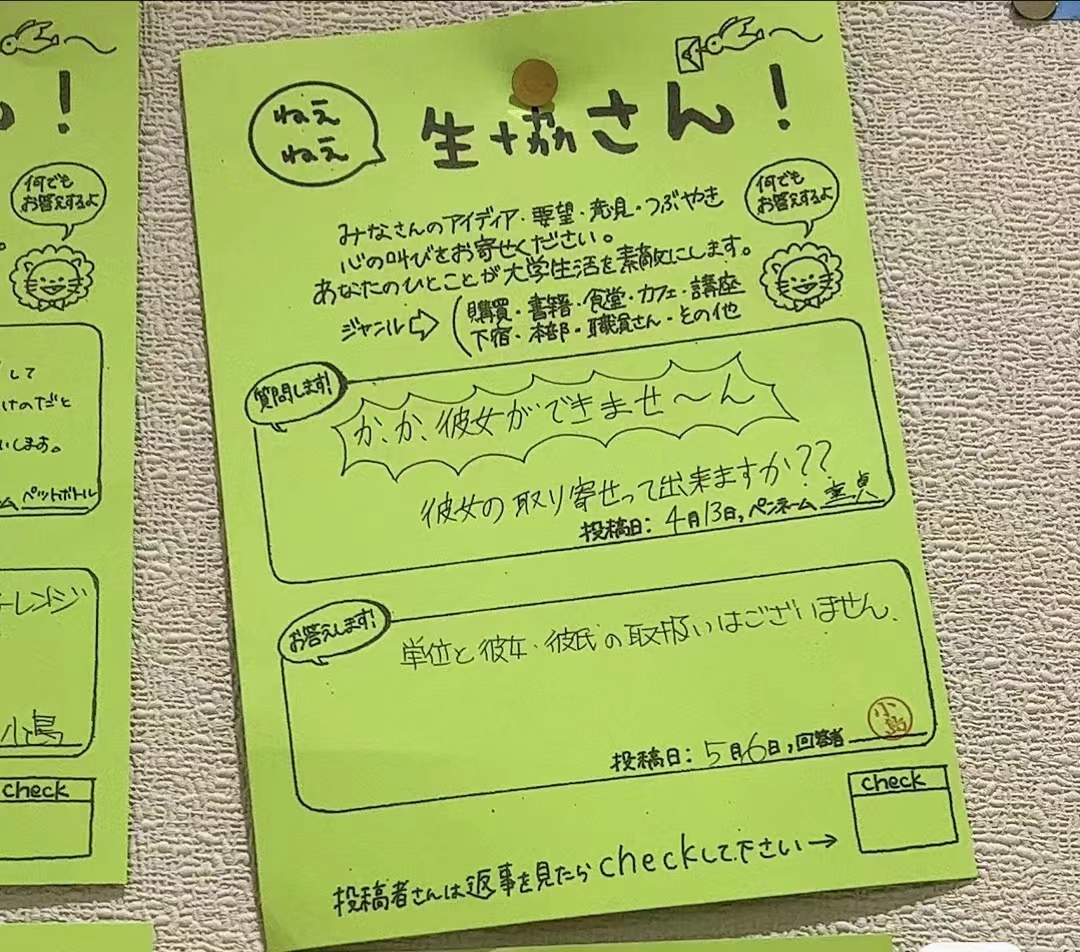 ねえ
ねえ
生協さん！
何でも
お答えするよ
みなさんのアイディア・要望・発見・つぶやき
心の叫びをお寄せください。
あなたのひとことが大学生活を素敵にします。
ジャンル⇨
購買・書籍・食堂・カフェ・講座
下宿・本部・職員さん・その他
質問します!
か、か、彼女ができませ〜ん
彼女の取り寄せって出来ますか??
投稿日: 4月13日, ペンネーム 童貞
お答えします!
単位と彼女・彼氏の取扱いはございません.
小島
投稿日: 5月6日, 回答者
check
投稿者さんは返事を見たらcheckして下さい→
！
何でも
お答えするよ
して
けのだと
いします。
ム ペットボトル
ーレンジ
小島
check